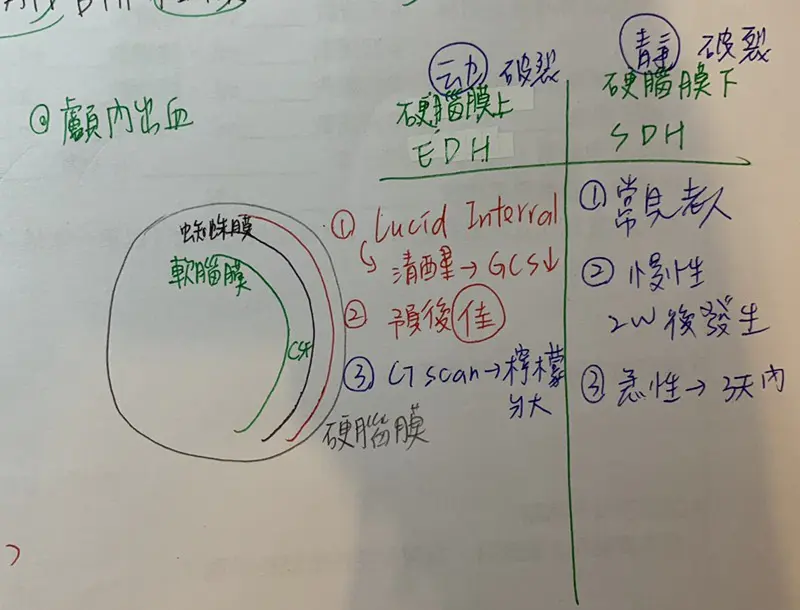 顱內出血
动 破裂
硬腦膜上
EDH
靜 破裂
硬腦膜下
SDH
蜘蛛膜
軟腦膜
CSF
硬腦膜
① Lucid Interral
清醒→GCS↓
② 預後佳
③ CT scan→檸檬
狀
① 常見老人
② 慢性
2W後發生
③ 急性→3天內